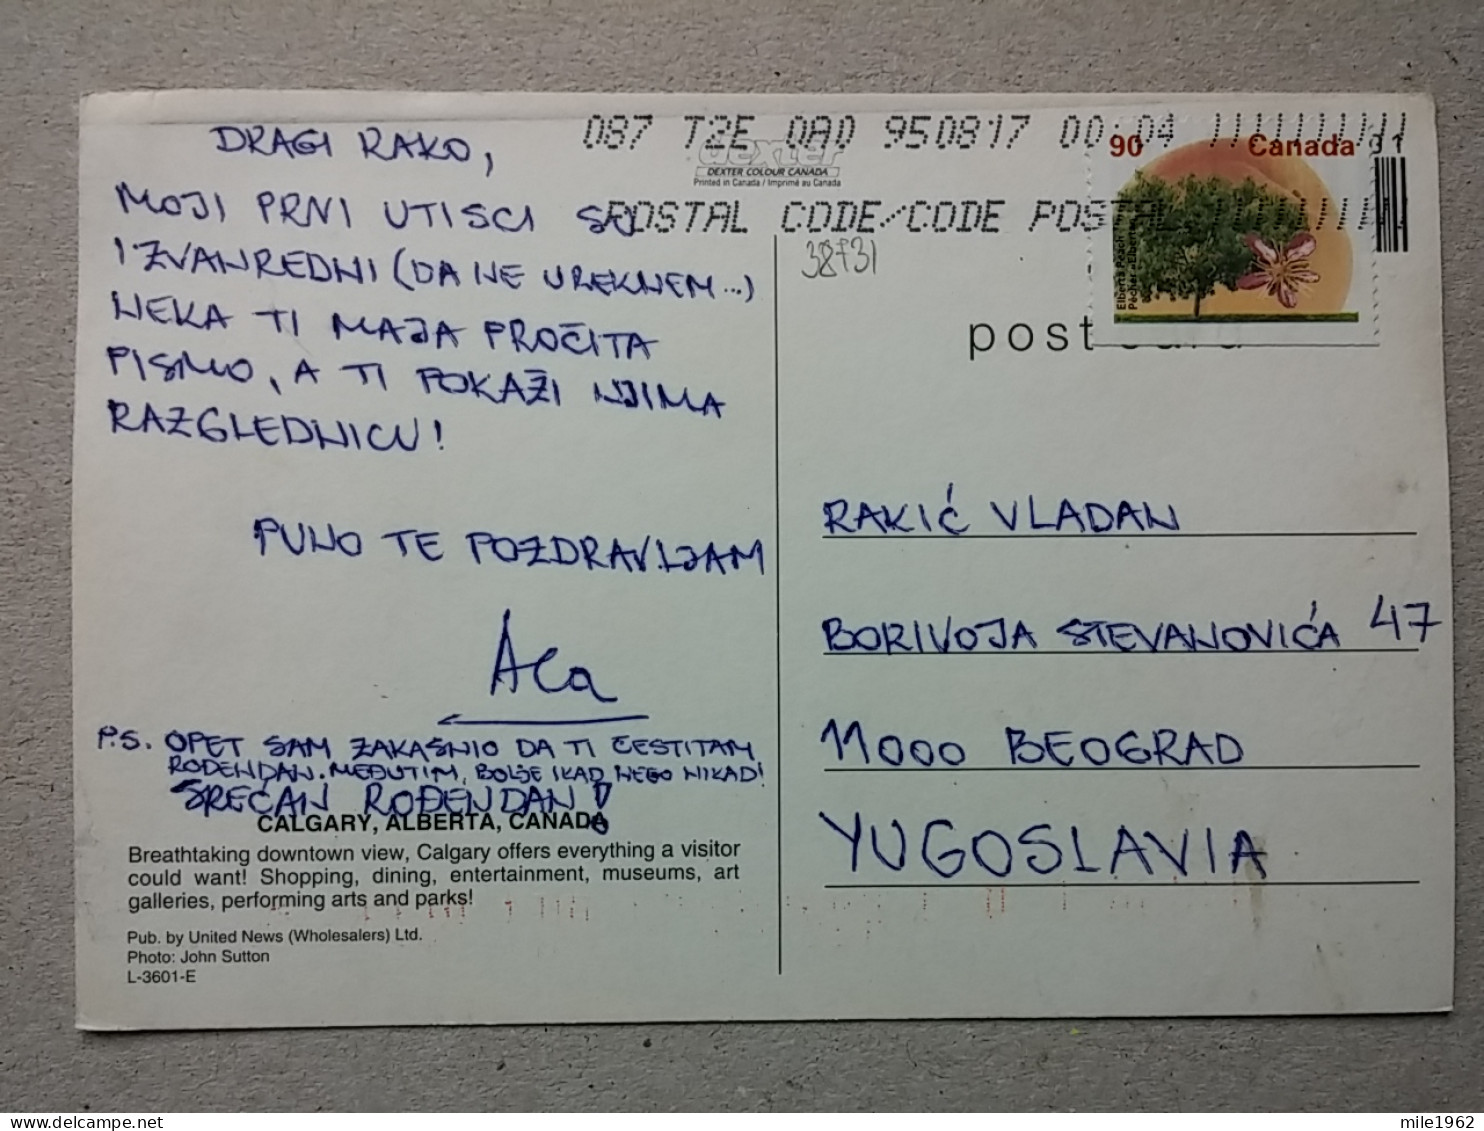 087 T2E 0A0 950817 00:04
POSTAL CODE/CODE POSTAL
dexter
DEXTER COLOUR CANADA
Printed in Canada / Imprimé au Canada
90 Canada
38731
post card
DRAGI RAKO,
MOJI PRVI UTISCI SU
IZVANREDNI (DA NE UREKNEM...)
NEKA TI MAJA PROČITA
PISMO, A TI POKAŽI NJIMA
RAZGLEDNICU!
PUNO TE POZDRAVLJAM
Aca
P.S. OPET SAM ZAKASNIO DA TI ČESTITAM
ROĐENDAN. MEĐUTIM, BOLJE IKAD NEGO NIKAD!
SREĆAN ROĐENDAN!
CALGARY, ALBERTA, CANADA
Breathtaking downtown view, Calgary offers everything a visitor
could want! Shopping, dining, entertainment, museums, art
galleries, performing arts and parks!
Pub. by United News (Wholesalers) Ltd.
Photo: John Sutton
L-3601-E
RAKIĆ VLADAN
BORIVOJA STEVANOVIĆA 47
11000 BEOGRAD
YUGOSLAVIA
mile1962